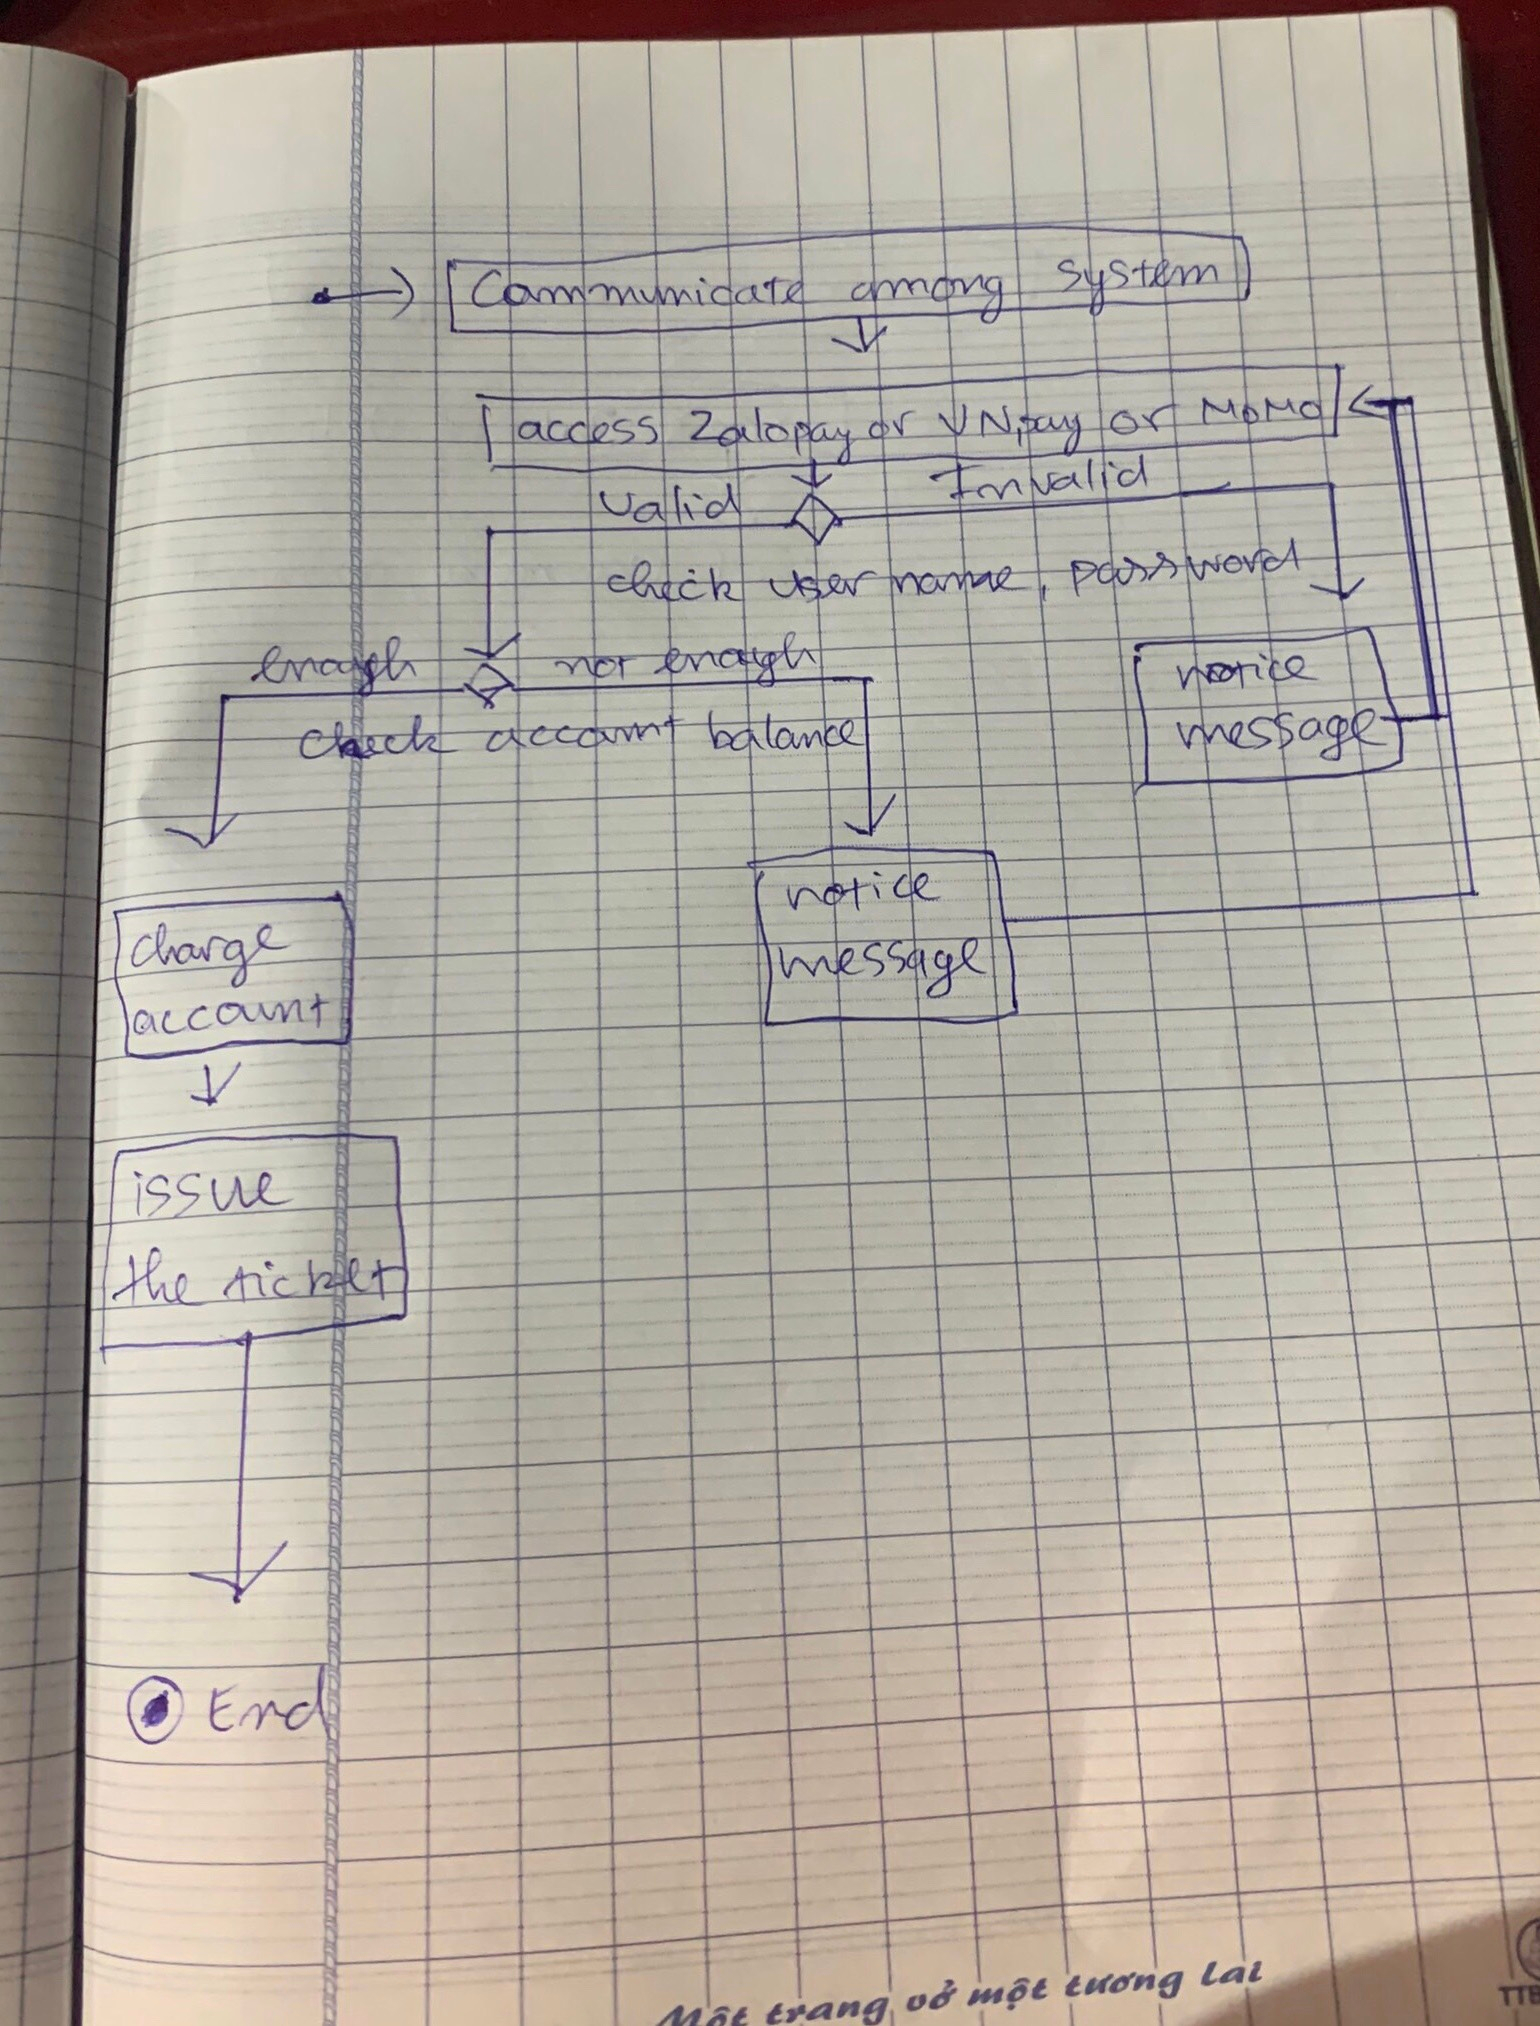 Communicate among system
access Zalopay or VNpay or MoMo
Valid
Invalid
check user name, password
enough
not enough
check account balance
notice
message
notice
message
charge
account
issue
the ticket
End
Một trang vở một tương lai